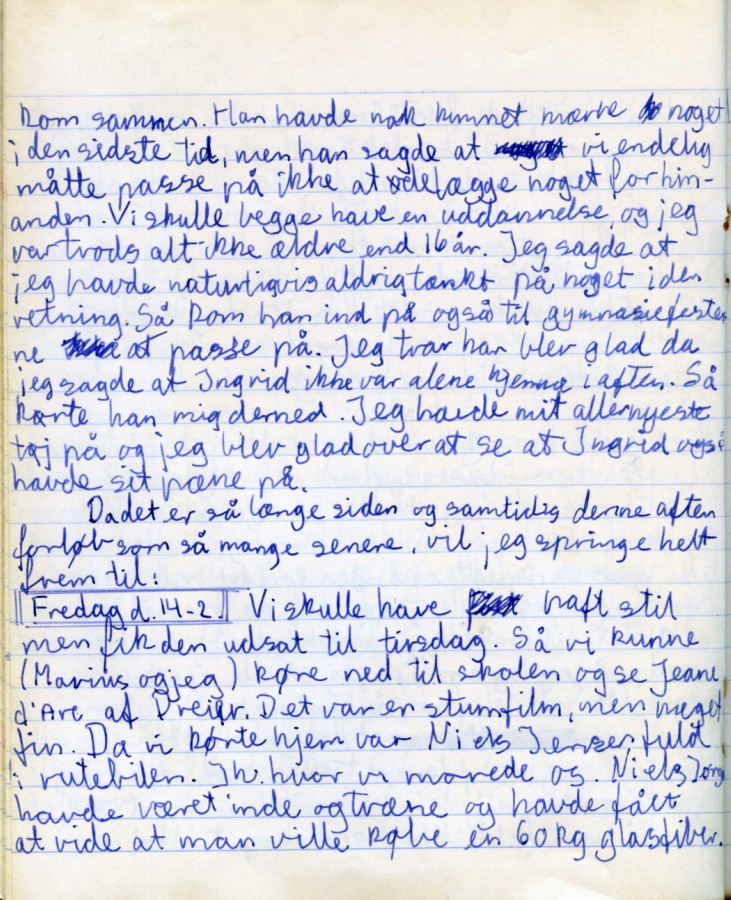 kom sammen. Han havde nok kunnet mærke noget
i den sidste tid, men han sagde at vi endelig
måtte passe på ikke at ødelægge noget for hin-
anden. Vi skulle begge have en uddannelse, og jeg
var trods alt ikke ældre end 16 år. Jeg sagde at
jeg havde naturligvis aldrig tænkt på noget i den
retning. Så kom han ind på også til gymnasiefester
ne at passe på. Jeg tror han blev glad da
jeg sagde at Ingrid ikke var alene hjemme i aften. Så
kørte han mig derned. Jeg havde mit allernyeste
tøj på og jeg blev glad over at se at Ingrid også
havde sit pæne på.
Da det er så længe siden og samtidig denne aften
forløb som så mange senere, vil jeg springe helt
frem til:
Fredag d. 14-2. Vi skulle have haft stil
men fik den udsat til tirsdag. Så vi kunne
(Marius og jeg) køre ned til skolen og se Jeane
d'Arc af Dreier. Det var en stumfilm, men meget
fin. Da vi kørte hjem var Niels Jensen fuld
i rutebilen. Ih. hvor vi morede os. Niels Jørg
havde været inde og træne og havde fået
at vide at man ville købe en 60 kg glasfiber.